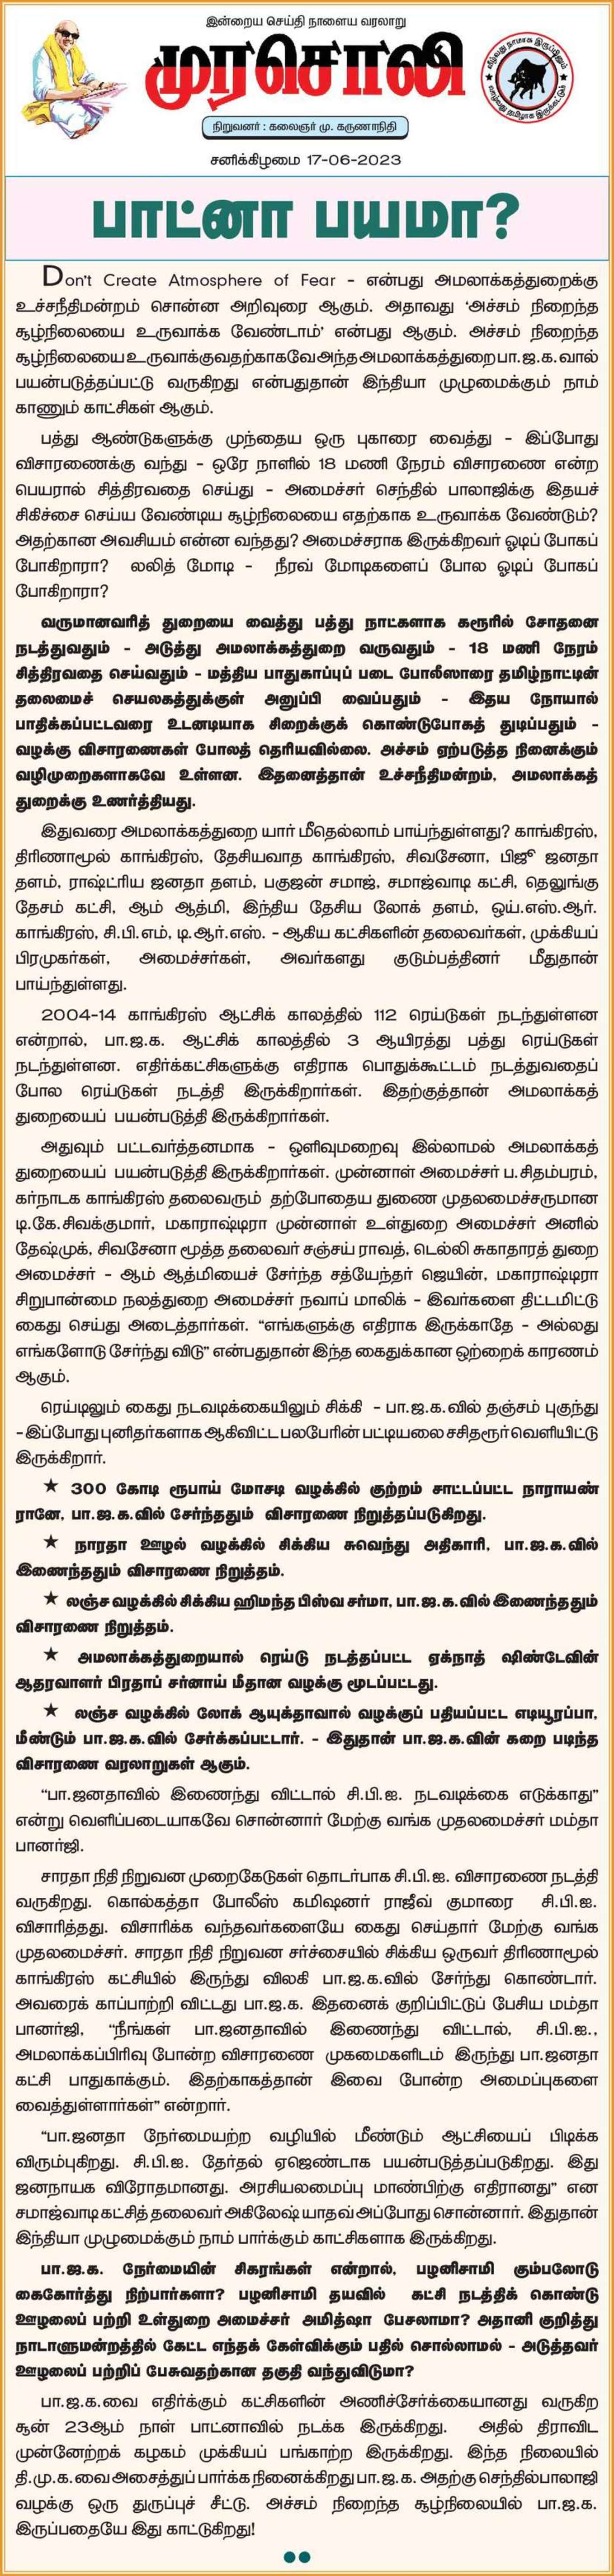 இன்றைய செய்தி நாளைய வரலாறு
முரசொலி
நிறுவனர் : கலைஞர் மு. கருணாநிதி
சனிக்கிழமை 17-06-2023
பாட்னா பயமா?
Don't Create Atmosphere of Fear - என்பது அமலாக்கத்துறைக்கு
உச்சநீதிமன்றம் சொன்ன அறிவுரை ஆகும். அதாவது 'அச்சம் நிறைந்த
சூழ்நிலையை உருவாக்க வேண்டாம்' என்பது ஆகும். அச்சம் நிறைந்த
சூழ்நிலையை உருவாக்குவதற்காகவே அந்த அமலாக்கத்துறை பா.ஜ.க.வால்
பயன்படுத்தப்பட்டு வருகிறது என்பதுதான் இந்தியா முழுமைக்கும் நாம்
காணும் காட்சிகள் ஆகும்.
பத்து ஆண்டுகளுக்கு முந்தைய ஒரு புகாரை வைத்து - இப்போது
விசாரணைக்கு வந்து - ஒரே நாளில் 18 மணி நேரம் விசாரணை என்ற
பெயரால் சித்திரவதை செய்து - அமைச்சர் செந்தில் பாலாஜிக்கு இதயச்
சிகிச்சை செய்ய வேண்டிய சூழ்நிலையை எதற்காக உருவாக்க வேண்டும்?
அதற்கான அவசியம் என்ன வந்தது? அமைச்சராக இருக்கிறவர் ஓடிப் போகப்
போகிறாரா? லலித் மோடி - நீரவ் மோடிகளைப் போல ஓடிப் போகப்
போகிறாரா?
வருமானவரித் துறையை வைத்து பத்து நாட்களாக கரூரில் சோதனை
நடத்துவதும் - அடுத்து அமலாக்கத்துறை வருவதும் - 18 மணி நேரம்
சித்திரவதை செய்வதும் - மத்திய பாதுகாப்புப் படை போலீஸாரை தமிழ்நாட்டின்
தலைமைச் செயலகத்துக்குள் அனுப்பி வைப்பதும் - இதய நோயால்
பாதிக்கப்பட்டவரை உடனடியாக சிறைக்குக் கொண்டுபோகத் துடிப்பதும் -
வழக்கு விசாரணைகள் போலத் தெரியவில்லை. அச்சம் ஏற்படுத்த நினைக்கும்
வழிமுறைகளாகவே உள்ளன. இதனைத்தான் உச்சநீதிமன்றம், அமலாக்கத்
துறைக்கு உணர்த்தியது.
இதுவரை அமலாக்கத்துறை யார் மீதெல்லாம் பாய்ந்துள்ளது? காங்கிரஸ்,
திரிணாமூல் காங்கிரஸ், தேசியவாத காங்கிரஸ், சிவசேனா, பிஜூ ஜனதா
தளம், ராஷ்ட்ரிய ஜனதா தளம், பகுஜன் சமாஜ், சமாஜ்வாடி கட்சி, தெலுங்கு
தேசம் கட்சி, ஆம் ஆத்மி, இந்திய தேசிய லோக் தளம், ஒய்.எஸ்.ஆர்.
காங்கிரஸ், சி.பி.எம், டி.ஆர்.எஸ். - ஆகிய கட்சிகளின் தலைவர்கள், முக்கியப்
பிரமுகர்கள், அமைச்சர்கள், அவர்களது குடும்பத்தினர் மீதுதான்
பாய்ந்துள்ளது.
2004-14 காங்கிரஸ் ஆட்சிக் காலத்தில் 112 ரெய்டுகள் நடந்துள்ளன
என்றால், பா.ஜ.க. ஆட்சிக் காலத்தில் 3 ஆயிரத்து பத்து ரெய்டுகள்
நடந்துள்ளன. எதிர்க்கட்சிகளுக்கு எதிராக பொதுக்கூட்டம் நடத்துவதைப்
போல ரெய்டுகள் நடத்தி இருக்கிறார்கள். இதற்குத்தான் அமலாக்கத்
துறையைப் பயன்படுத்தி இருக்கிறார்கள்.
அதுவும் பட்டவர்த்தனமாக - ஒளிவுமறைவு இல்லாமல் அமலாக்கத்
துறையைப் பயன்படுத்தி இருக்கிறார்கள். முன்னாள் அமைச்சர் ப.சிதம்பரம்,
கர்நாடக காங்கிரஸ் தலைவரும் தற்போதைய துணை முதலமைச்சருமான
டி.கே.சிவக்குமார், மகாராஷ்டிரா முன்னாள் உள்துறை அமைச்சர் அனில்
தேஷ்முக், சிவசேனா மூத்த தலைவர் சஞ்சய் ராவத், டெல்லி சுகாதாரத் துறை
அமைச்சர் - ஆம் ஆத்மியைச் சேர்ந்த சத்யேந்தர் ஜெயின், மகாராஷ்டிரா
சிறுபான்மை நலத்துறை அமைச்சர் நவாப் மாலிக் - இவர்களை திட்டமிட்டு
கைது செய்து அடைத்தார்கள். "எங்களுக்கு எதிராக இருக்காதே - அல்லது
எங்களோடு சேர்ந்து விடு" என்பதுதான் இந்த கைதுக்கான ஒற்றைக் காரணம்
ஆகும்.
ரெய்டிலும் கைது நடவடிக்கையிலும் சிக்கி - பா.ஜ.க.வில் தஞ்சம் புகுந்து
- இப்போது புனிதர்களாக ஆகிவிட்ட பலபேரின் பட்டியலை சசிதரூர் வெளியிட்டு
இருக்கிறார்.
★ 300 கோடி ரூபாய் மோசடி வழக்கில் குற்றம் சாட்டப்பட்ட நாராயண்
ரானே, பா.ஜ.க.வில் சேர்ந்ததும் விசாரணை நிறுத்தப்படுகிறது.
★ நாரதா ஊழல் வழக்கில் சிக்கிய சுவெந்து அதிகாரி, பா.ஜ.க.வில்
இணைந்ததும் விசாரணை நிறுத்தம்.
★ லஞ்ச வழக்கில் சிக்கிய ஹிமந்த பிஸ்வ சர்மா, பா.ஜ.க.வில் இணைந்ததும்
விசாரணை நிறுத்தம்.
★ அமலாக்கத்துறையால் ரெய்டு நடத்தப்பட்ட ஏக்நாத் ஷிண்டேவின்
ஆதரவாளர் பிரதாப் சர்னாய் மீதான வழக்கு மூடப்பட்டது.
★ லஞ்ச வழக்கில் லோக் ஆயுக்தாவால் வழக்குப் பதியப்பட்ட எடியூரப்பா,
மீண்டும் பா.ஜ.க.வில் சேர்க்கப்பட்டார். - இதுதான் பா.ஜ.க.வின் கறை படிந்த
விசாரணை வரலாறுகள் ஆகும்.
"பா.ஜனதாவில் இணைந்து விட்டால் சி.பி.ஐ. நடவடிக்கை எடுக்காது"
என்று வெளிப்படையாகவே சொன்னார் மேற்கு வங்க முதலமைச்சர் மம்தா
பானர்ஜி.
சாரதா நிதி நிறுவன முறைகேடுகள் தொடர்பாக சி.பி.ஐ. விசாரணை நடத்தி
வருகிறது. கொல்கத்தா போலீஸ் கமிஷனர் ராஜீவ் குமாரை சி.பி.ஐ.
விசாரித்தது. விசாரிக்க வந்தவர்களையே கைது செய்தார் மேற்கு வங்க
முதலமைச்சர். சாரதா நிதி நிறுவன சர்ச்சையில் சிக்கிய ஒருவர் திரிணாமூல்
காங்கிரஸ் கட்சியில் இருந்து விலகி பா.ஜ.க.வில் சேர்ந்து கொண்டார்.
அவரைக் காப்பாற்றி விட்டது பா.ஜ.க. இதனைக் குறிப்பிட்டுப் பேசிய மம்தா
பானர்ஜி, "நீங்கள் பா.ஜனதாவில் இணைந்து விட்டால், சி.பி.ஐ.,
அமலாக்கப்பிரிவு போன்ற விசாரணை முகமைகளிடம் இருந்து பா.ஜனதா
கட்சி பாதுகாக்கும். இதற்காகத்தான் இவை போன்ற அமைப்புகளை
வைத்துள்ளார்கள்" என்றார்.
"பா.ஜனதா நேர்மையற்ற வழியில் மீண்டும் ஆட்சியைப் பிடிக்க
விரும்புகிறது. சி.பி.ஐ. தேர்தல் ஏஜெண்டாக பயன்படுத்தப்படுகிறது. இது
ஜனநாயக விரோதமானது. அரசியலமைப்பு மாண்பிற்கு எதிரானது" என
சமாஜ்வாடி கட்சித் தலைவர் அகிலேஷ் யாதவ் அப்போது சொன்னார். இதுதான்
இந்தியா முழுமைக்கும் நாம் பார்க்கும் காட்சிகளாக இருக்கிறது.
பா.ஜ.க. நேர்மையின் சிகரங்கள் என்றால், பழனிசாமி கும்பலோடு
கைகோர்த்து நிற்பார்களா? பழனிசாமி தயவில் கட்சி நடத்திக் கொண்டு
ஊழலைப் பற்றி உள்துறை அமைச்சர் அமித்ஷா பேசலாமா? அதானி குறித்து
நாடாளுமன்றத்தில் கேட்ட எந்தக் கேள்விக்கும் பதில் சொல்லாமல் - அடுத்தவர்
ஊழலைப் பற்றிப் பேசுவதற்கான தகுதி வந்துவிடுமா?
பா.ஜ.க.வை எதிர்க்கும் கட்சிகளின் அணிச்சேர்க்கையானது வருகிற
சூன் 23ஆம் நாள் பாட்னாவில் நடக்க இருக்கிறது. அதில் திராவிட
முன்னேற்றக் கழகம் முக்கியப் பங்காற்ற இருக்கிறது. இந்த நிலையில்
தி.மு.க.வை அசைத்துப் பார்க்க நினைக்கிறது பா.ஜ.க. அதற்கு செந்தில்பாலாஜி
வழக்கு ஒரு துருப்புச் சீட்டு. அச்சம் நிறைந்த சூழ்நிலையில் பா.ஜ.க.
இருப்பதையே இது காட்டுகிறது!